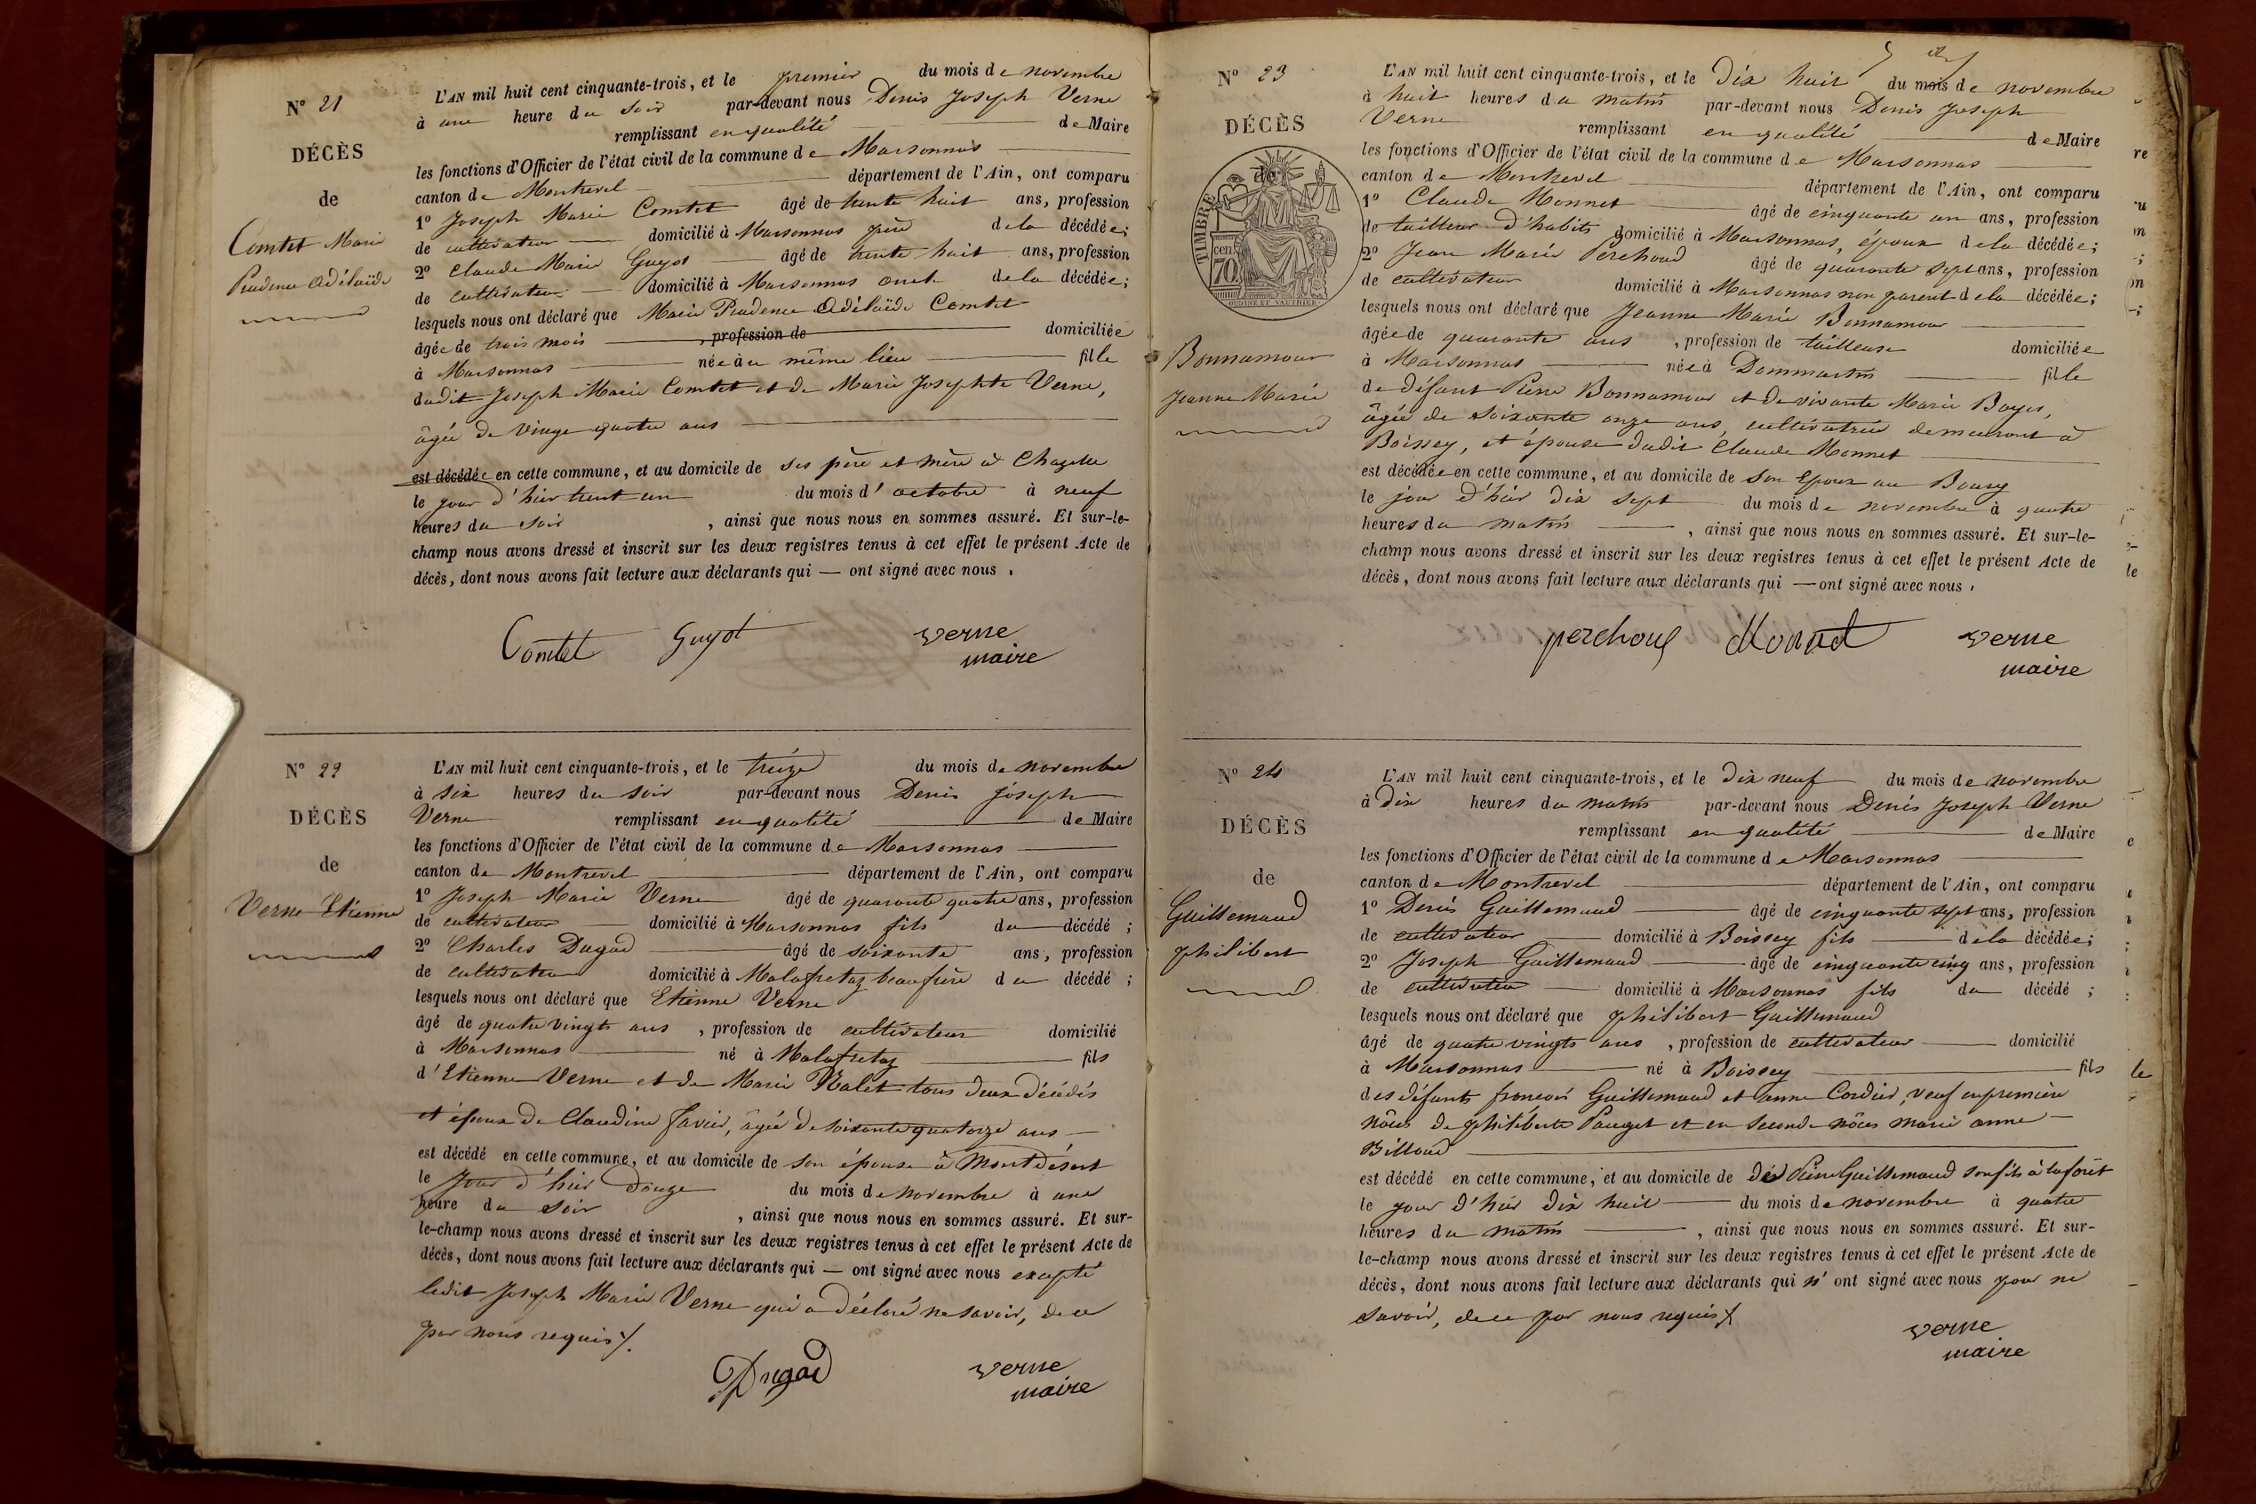 N° 21
DÉCÈS
de
Comtet Marie
Prudence Adélaïde
L'AN mil huit cent cinquante-trois, et le premier du mois de novembre
à une heure du soir par-devant nous Denis Joseph Verne
remplissant en qualité de Maire
les fonctions d'Officier de l'état civil de la commune de Marsonnas
canton de Montrevel département de l'Ain, ont comparu
1° Joseph Marie Comtet âgé de trente huit ans, profession
de cultivateur domicilié à Marsonnas père de la décédée;
2° Claude Marie Guyot âgé de trente huit ans, profession
de cultivateur domicilié à Marsonnas oncle de la décédée;
lesquels nous ont déclaré que Marie Prudence Adélaïde Comtet
âgée de trois mois , profession de domiciliée
à Marsonnas née au même lieu fille
dudit Joseph Marie Comtet et de Marie Josephte Verne,
âgée de vingt quatre ans
est décédée en cette commune, et au domicile de ses père et mère à Chazelle
le jour d'hier trent un du mois d'octobre à neuf
heures du soir , ainsi que nous nous en sommes assuré. Et sur-le-
champ nous avons dressé et inscrit sur les deux registres tenus à cet effet le présent Acte de
décès, dont nous avons fait lecture aux déclarants qui — ont signé avec nous.
Comtet Guyot Verne
maire
N° 22
DÉCÈS
de
Verne Etienne
L'AN mil huit cent cinquante-trois, et le treize du mois de novembre
à six heures du soir par-devant nous Denis Joseph
Verne remplissant en qualité de Maire
les fonctions d'Officier de l'état civil de la commune de Marsonnas
canton de Montrevel département de l'Ain, ont comparu
1° Joseph Marie Verne âgé de quarante quatre ans, profession
de cultivateur domicilié à Marsonnas fils du décédé ;
2° Charles Dugad âgé de soixante ans, profession
de cultivateur domicilié à Malafretaz beaufrère du décédé ;
lesquels nous ont déclaré que Etienne Verne
âgé de quatre vingts ans , profession de cultivateur domicilié
à Marsonnas né à Malafretaz fils
d'Etienne Verne et de Marie Ralet tous deux décédés
et époux de Claudine Favier, âgée de soixante quatorze ans
est décédé en cette commune, et au domicile de son épouse à Montdésert
le Jour d'hier douze du mois de novembre à une
heure du soir , ainsi que nous nous en sommes assuré. Et sur-
le-champ nous avons dressé et inscrit sur les deux registres tenus à cet effet le présent Acte de
décès, dont nous avons fait lecture aux déclarants qui — ont signé avec nous excepté
ledit Joseph Marie Verne qui a déclaré ne savoir, de ce
par nous requis /.
Dugad Verne
maire
N° 23
DÉCÈS
de
TIMBRE
70
cen.
Bonnamour
Jeanne Marie
L'AN mil huit cent cinquante-trois, et le dix huit du mois de novembre
à huit heures du matin par-devant nous Denis Joseph
Verne remplissant en qualité de Maire
les fonctions d'Officier de l'état civil de la commune de Marsonnas
canton de Montrevel département de l'Ain, ont comparu
1° Claude Monnet âgé de cinquante un ans, profession
de tailleur d'habits domicilié à Marsonnas, époux de la décédée;
2° Jean Marie Perchoud âgé de quarante sept ans, profession
de cultivateur domicilié à Marsonnas non parent de la décédée;
lesquels nous ont déclaré que Jeanne Marie Bonnamour
âgée de quarante ans , profession de tailleuse domiciliée
à Marsonnas née à Dommartin fille
de défunt Pierre Bonnamour et de vivante Marie Boyer,
âgée de soixante onze ans, cultivatrice demeurant à
Boissey, et épouse dudit Claude Monnet
est décédée en cette commune, et au domicile de son époux au Bourg
le jour d'hier dix sept du mois de novembre à quatre
heures du matin , ainsi que nous nous en sommes assuré. Et sur-le-
champ nous avons dressé et inscrit sur les deux registres tenus à cet effet le présent Acte de
décès, dont nous avons fait lecture aux déclarants qui — ont signé avec nous.
perchoud Monnet Verne
maire
N° 24
DÉCÈS
de
Guillemaud
philibert
L'AN mil huit cent cinquante-trois, et le dix neuf du mois de novembre
à dix heures du matin par-devant nous Denis Joseph Verne
remplissant en qualité de Maire
les fonctions d'Officier de l'état civil de la commune de Marsonnas
canton de Montrevel département de l'Ain, ont comparu
1° Denis Guillemaud âgé de cinquante sept ans, profession
de cultivateur domicilié à Boissey fils de la décédée;
2° Joseph Guillemaud âgé de cinquante cinq ans, profession
de cultivateur domicilié à Marsonnas fils du décédé ;
lesquels nous ont déclaré que philibert Guillemaud
âgé de quatre vingts ans , profession de cultivateur domicilié
à Marsonnas né à Boissey fils
des défunts françois Guillemaud et anne Cordier, veuf en première
nôces de philiberte Pauget et en seconde nôces marie anne
Billoud
est décédé en cette commune, et au domicile de Pierre Guillemaud son fils à la forêt
le jour d'hier dix huit du mois de novembre à quatre
heures du matin , ainsi que nous nous en sommes assuré. Et sur-
le-champ nous avons dressé et inscrit sur les deux registres tenus à cet effet le présent Acte de
décès, dont nous avons fait lecture aux déclarants qui n'ont signé avec nous pour ne
savoir, de ce par nous requis /.
Verne
maire